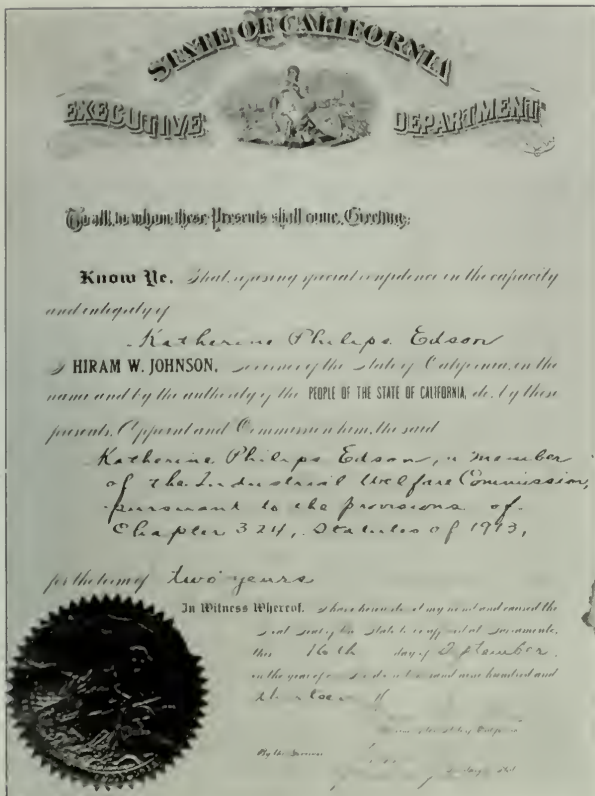 STATE OF CALIFORNIA
EXECUTIVE DEPARTMENT
To all to whom these Presents shall come, Greeting:
Know Ye, That reposing special confidence in the capacity
and integrity of
Katherine Philips Edson
I HIRAM W. JOHNSON, Governor of the State of California, in the
name and by the authority of the PEOPLE OF THE STATE OF CALIFORNIA, do, by these
presents, Appoint and Commission him, the said
Katherine Philips Edson, a member
of the Industrial Welfare Commission,
pursuant to the provisions of
Chapter 324, Statutes of 1913,
for the term of two years
In Witness Whereof, I have hereunto set my hand and caused the
Great Seal of the State to be affixed at Sacramento,
this 16th day of September,
in the year of one thousand nine hundred and
thirteen
Governor